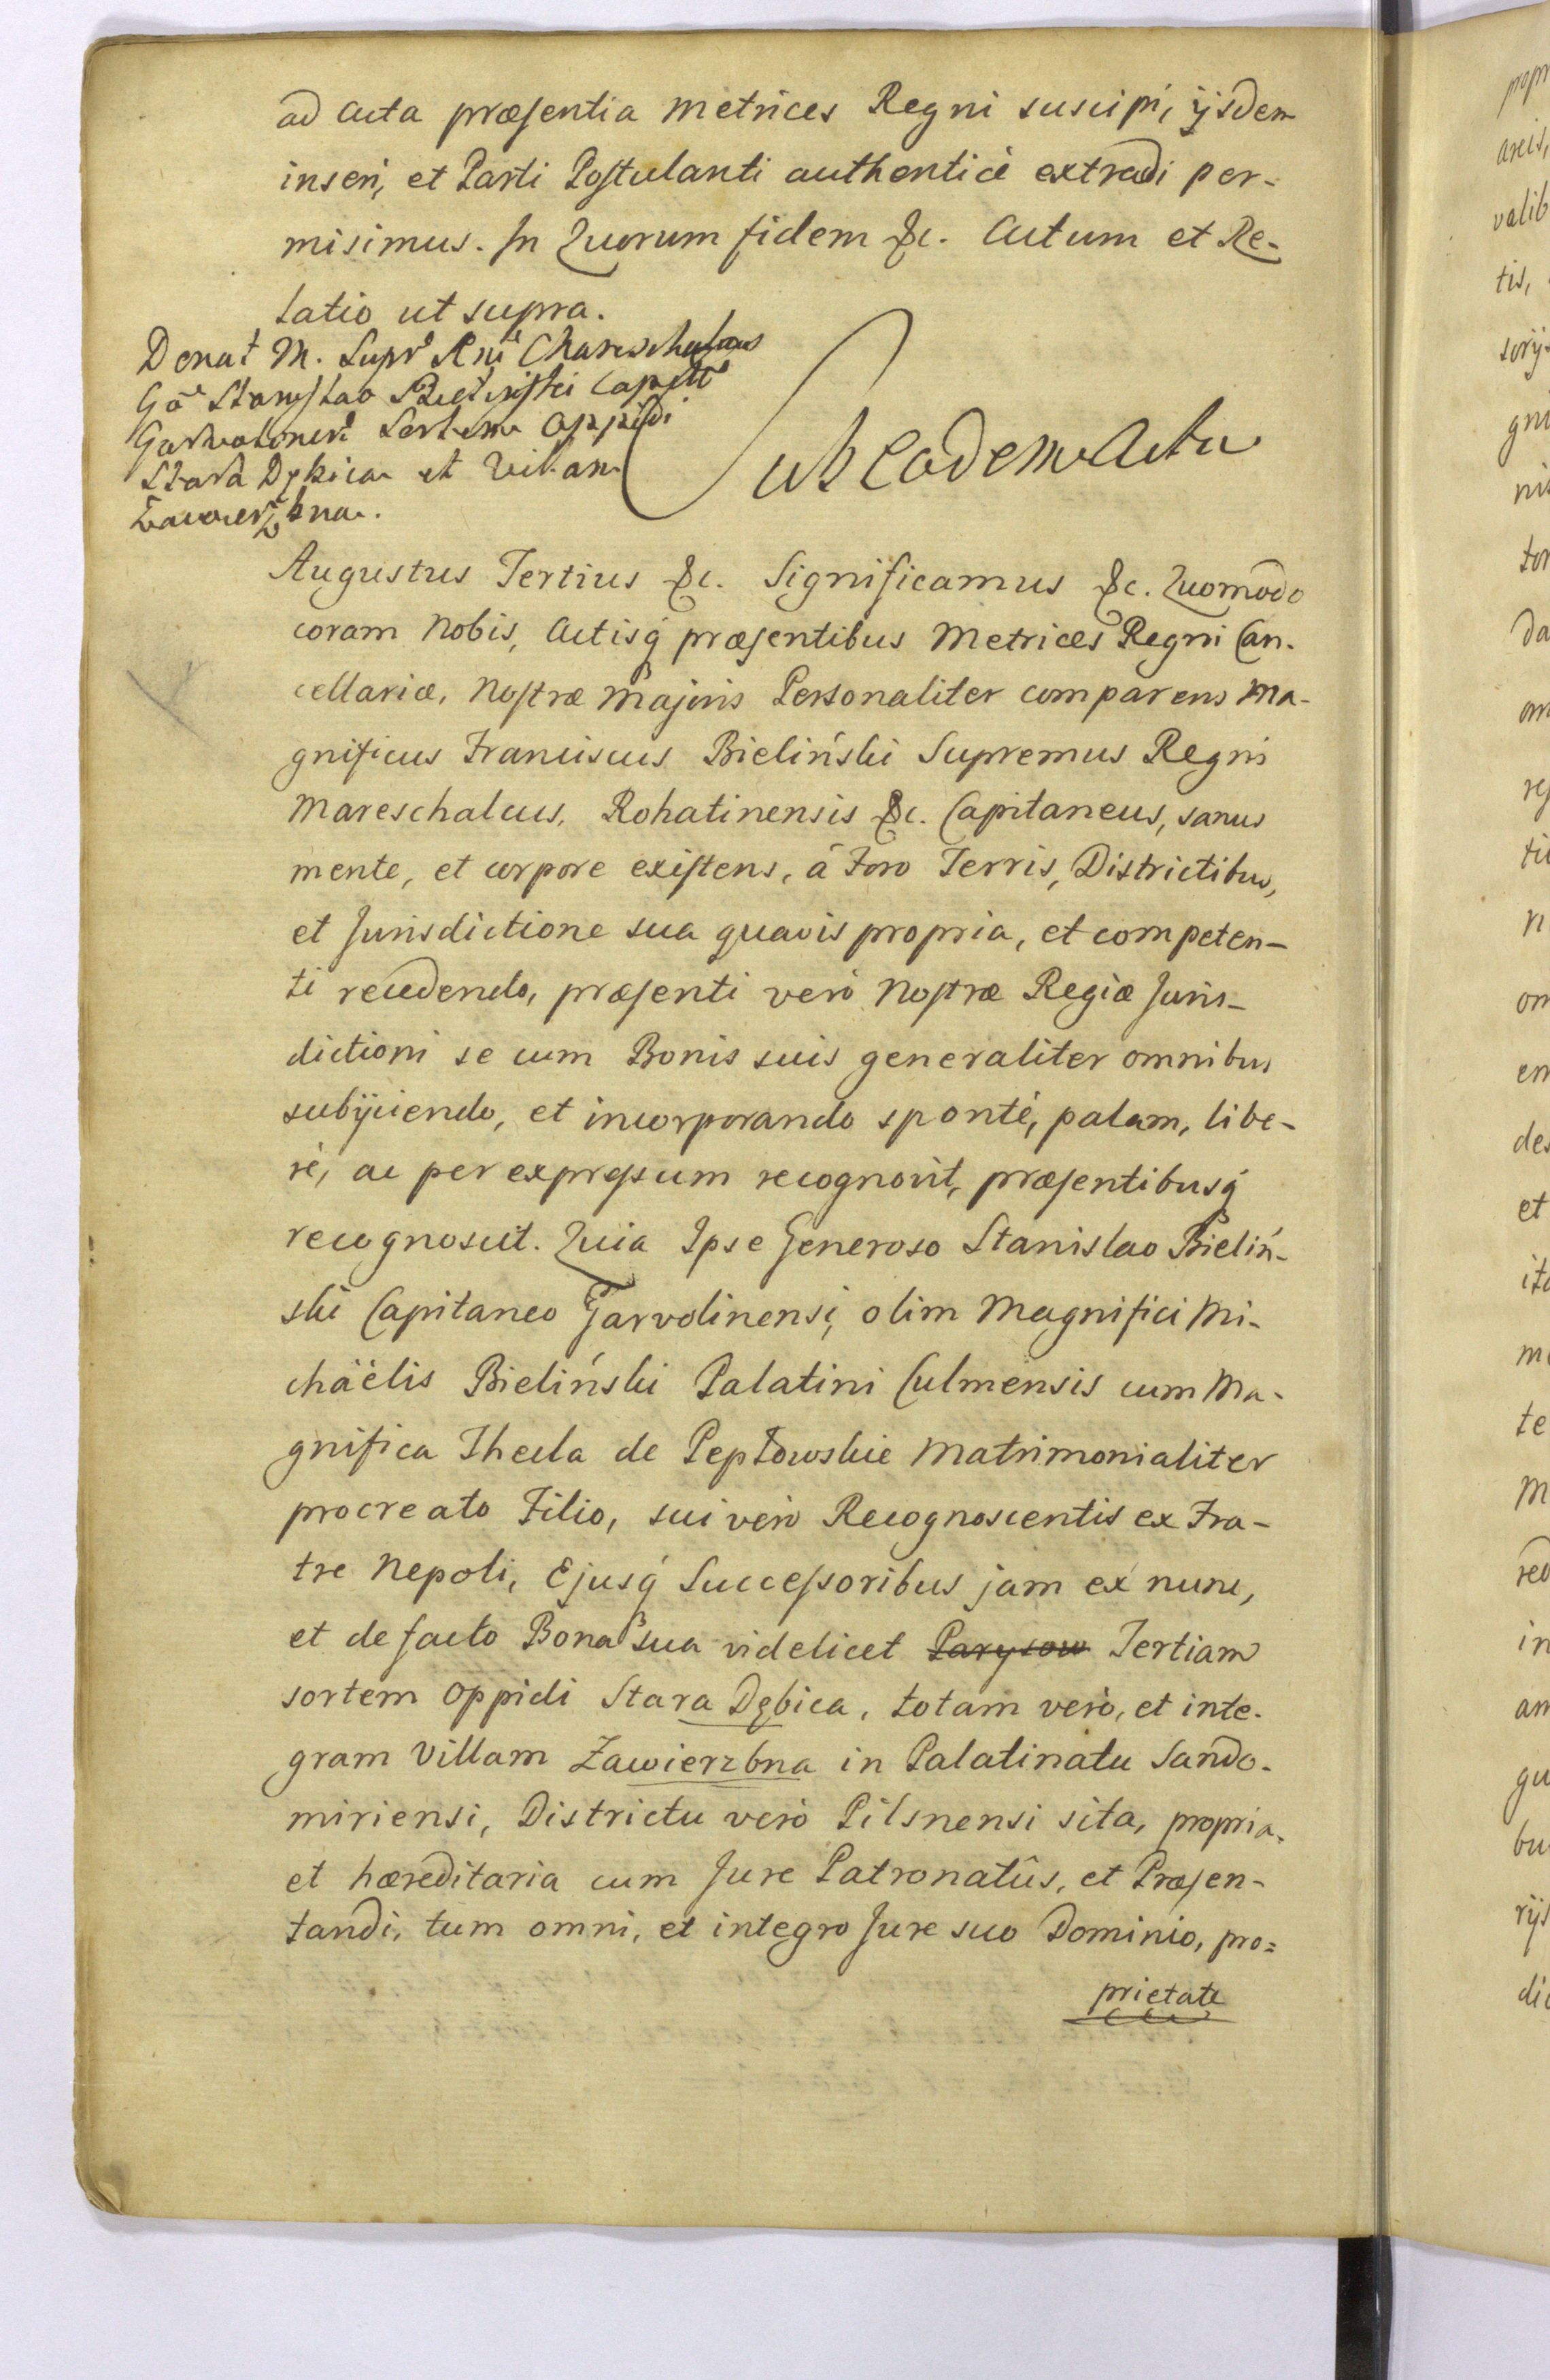 ad Acta præsentia Metrices Regni suscipi, ijsdem
inseri, et Parti Postulanti authenticè extradi per-
misimus. In Quorum fidem &c. Actum et Re-
latio ut supra.
Donat M. Supr. Rni Mareschalcus
Gō Stanislao Bielinski Capit̄
Garvolinen̄ Sortem Oppidi
Stara Dębica et Villam
Zawierzbna.
Sub Eodem Actu
Augustus Tertius &c. Significamus &c. Quomodo
coram Nobis, Actisq́ præsentibus Metrices Regni Can-
cellariæ, Nostræ Majoris Personaliter comparens Ma-
gnificus Franciscus Bieliński Supremus Regni
Mareschalcus, Rohatinensis &c. Capitaneus, sanus
mente, et corpore existens, â Foro Terris, Districtibus,
et Jurisdictione sua quavis propria, et competen-
ti recedendo, præsenti verò Nostræ Regiæ Juris-
dictioni se cum Bonis suis generaliter omnibus
subijciendo, et incorporando spontè, palam, libe-
rè, ac per expressum recognovit, præsentibusq́
recognoscit. Quia Ipse Generoso Stanislao Bieliń-
ski Capitaneo Garvolinensi, olim Magnifici Mi-
chäelis Bieliński Palatini Culmensis cum Ma-
gnifica Thecla de Pepłowskie Matrimonialiter
procreato Filio, sui verò Recognoscentis ex Fra-
tre Nepoti, Ejusq́ Successoribus jam ex nunc,
et de facto Bona sua videlicet Parysow Tertiam
sortem Oppidi Stara Dębica, totam verò, et inte-
gram Villam Zawierzbna in Palatinatu Sando-
miriensi, Districtu verò Pilsnensi sita, propria,
et hæreditaria cum Jure Patronatûs, et Præsen-
tandi, tum omni, et integro Jure suo Dominio, pro=
prietate